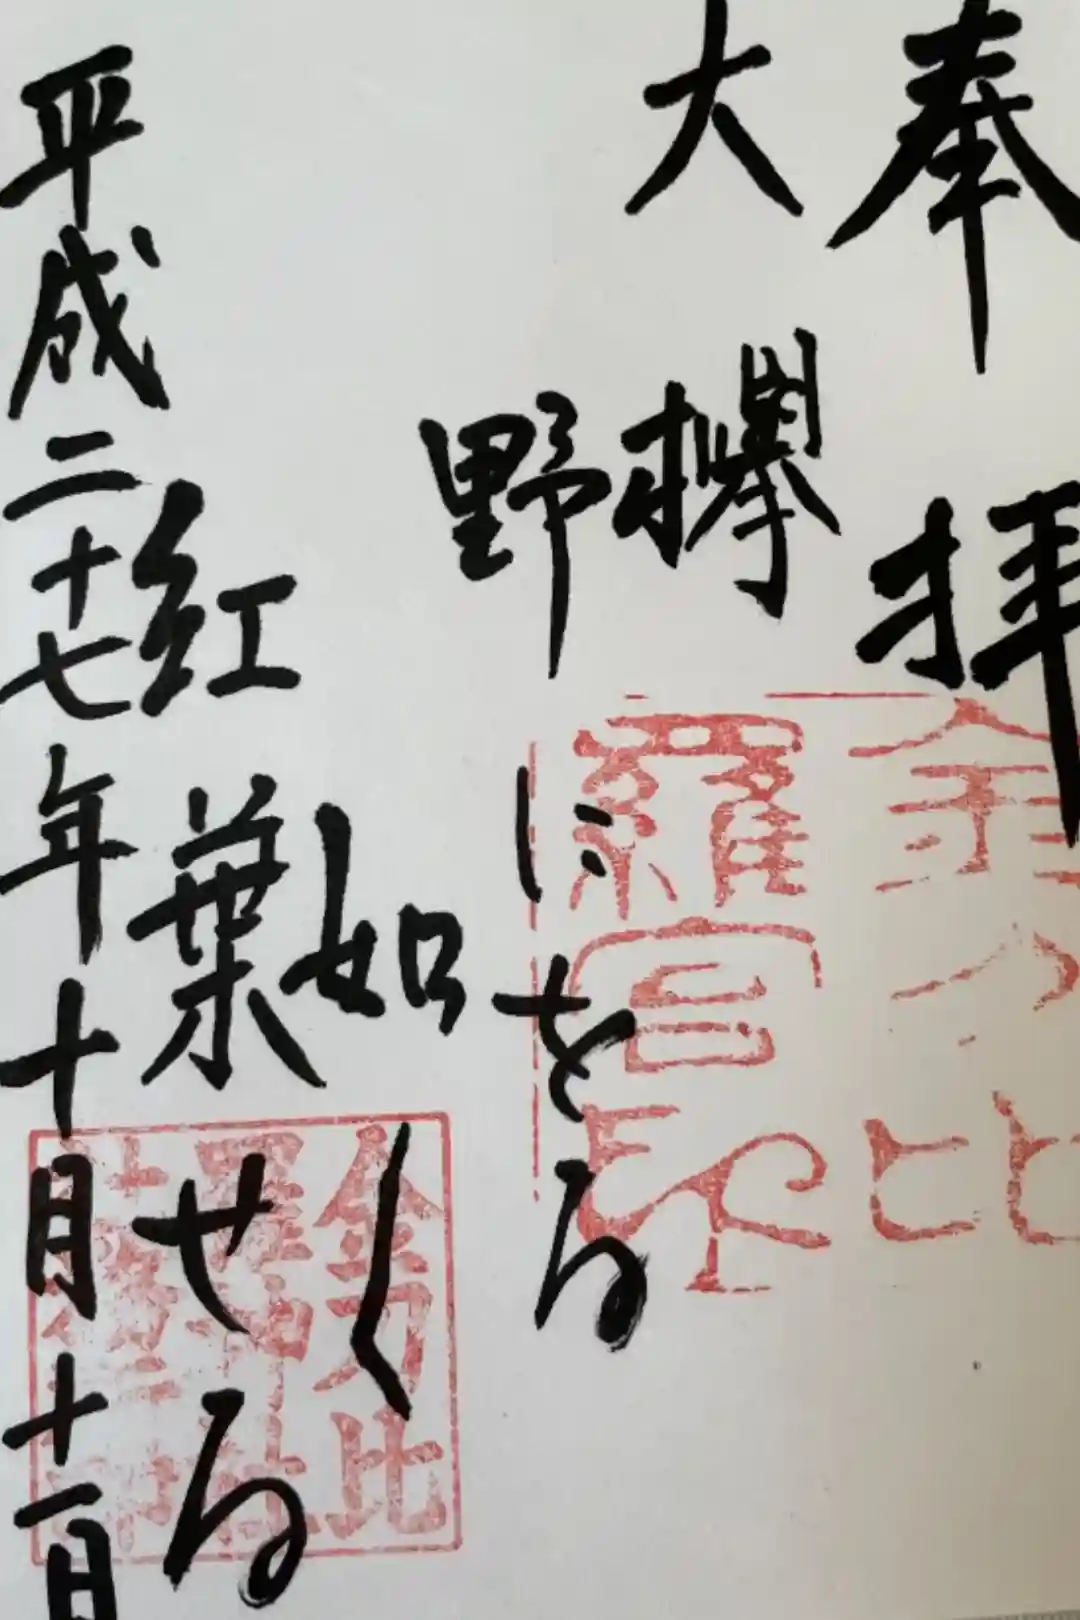 奉拝
大欅
野にをる
如く
紅葉せる
平成二十七年十月十一日
金刀比
羅宮印
金刀比
羅神社